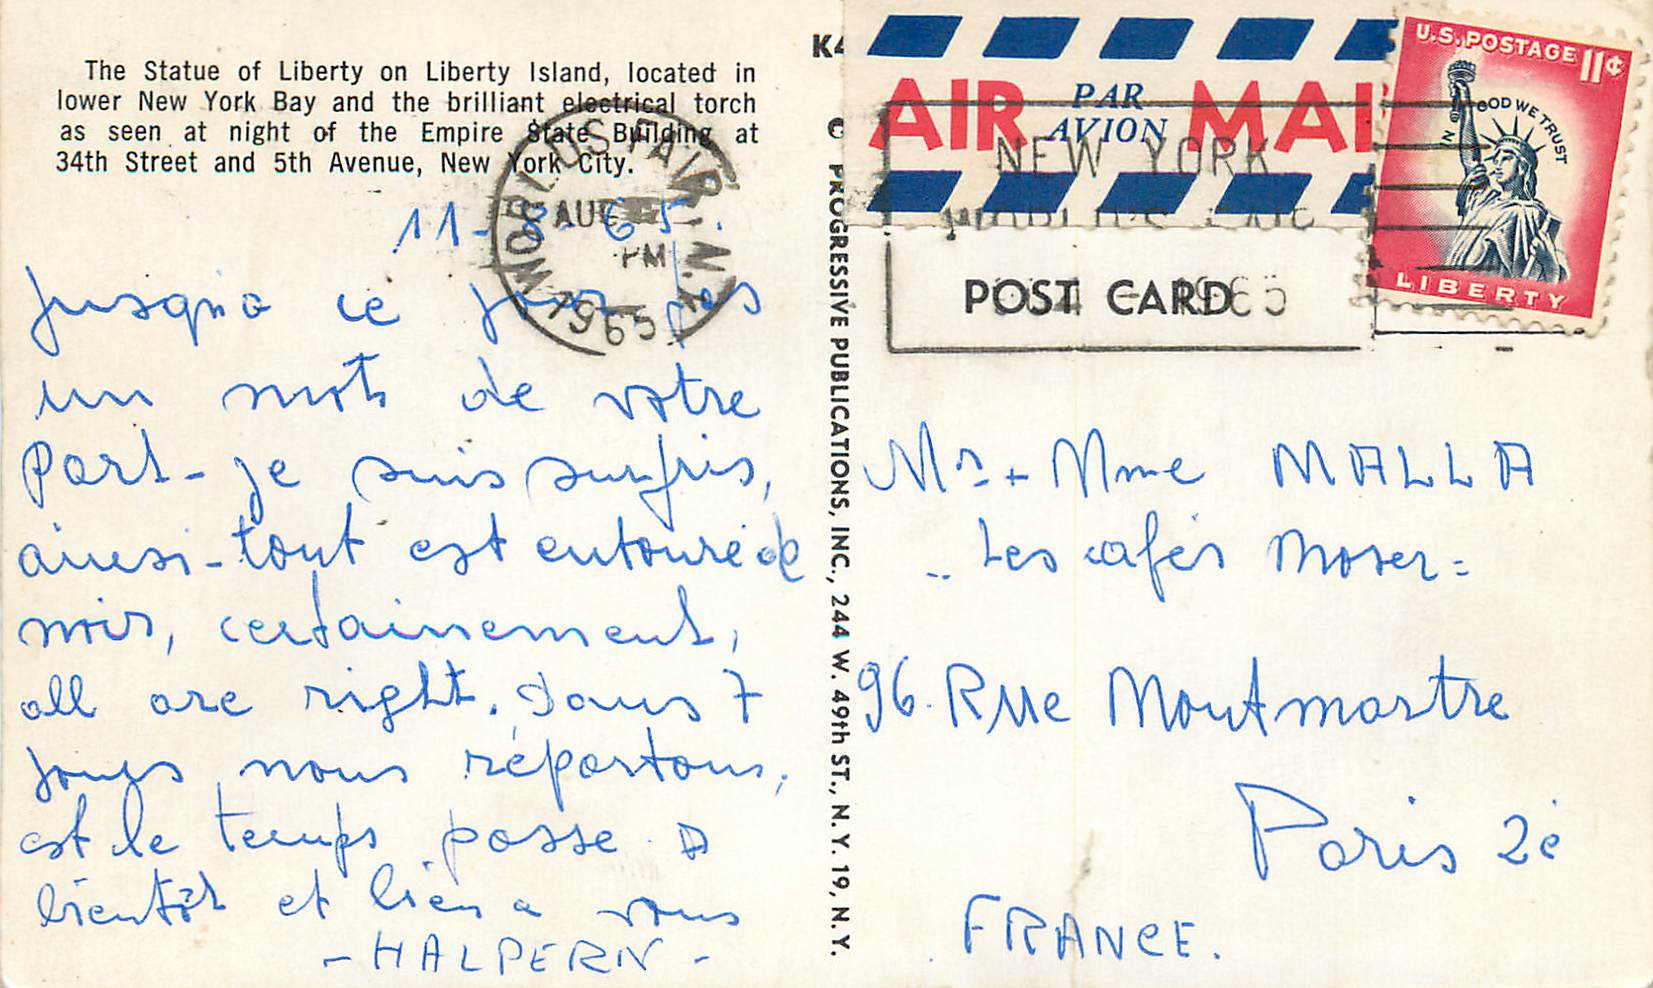 The Statue of Liberty on Liberty Island, located in
lower New York Bay and the brilliant electrical torch
as seen at night of the Empire State Building at
34th Street and 5th Avenue, New York City.
11-8-65.
Jusqu'a ce jour pas
un mots de votre
Part- je suis surpris,
ainsi-tout est entouré de
noir, certainement,
all are right. Dans 7
jours nous répartons,
est le temps passe. A
bientôt et bien a vous
-HALPERN-
WORLD'S FAIR, N.Y.
AUG
PM
1965
K4
© PROGRESSIVE PUBLICATIONS, INC., 244 W. 49th ST., N. Y. 19, N. Y.
AIR PAR AVION MAI
NEW YORK
WORLD'S FAIR
1965
POST CARD
U.S. POSTAGE 11¢
IN GOD WE TRUST
LIBERTY
Mr + Mme MALLA
.. Les cafés Moser =
96. Rue Montmartre
Paris 2è
FRANCE.